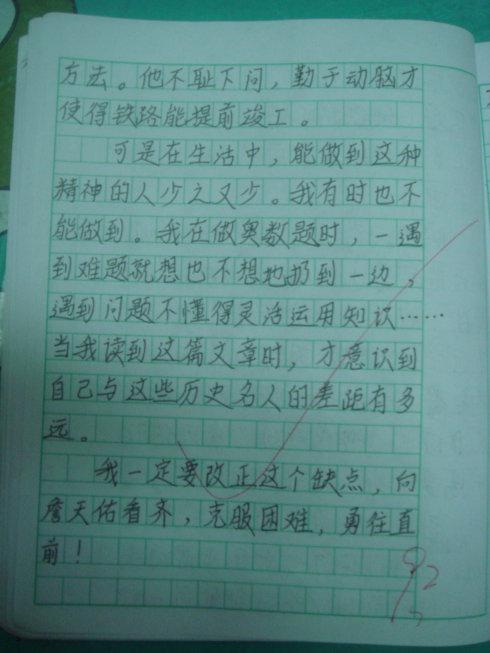 方法。他不耻下问，勤于动脑才
使得铁路能提前竣工。
可是在生活中，能做到这种
精神的人少之又少。我有时也不
能做到。我在做奥数题时，一遇
到难题就想也不想地扔到一边，
遇到问题不懂得灵活运用知识……
当我读到这篇文章时，才意识到
自己与这些历史名人的差距有多
远。
我一定要改正这个缺点，向
詹天佑看齐，克服困难，勇往直
前！